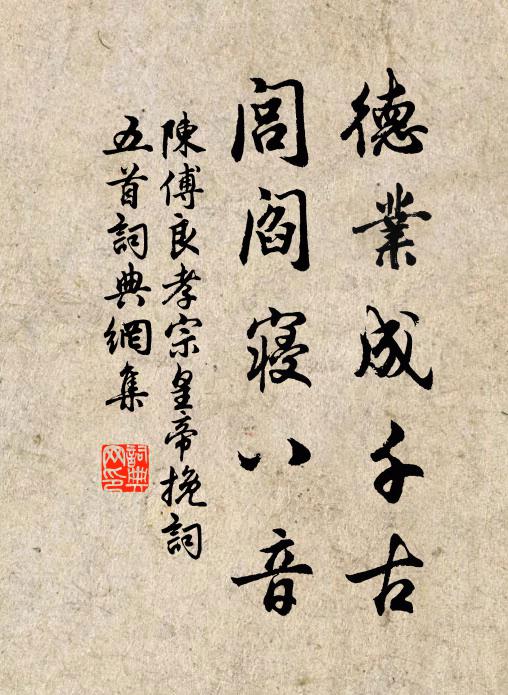 德業成千古
閭閻寢八音
陳傅良孝宗皇帝挽詞
五首詞典網集
詞典
网印